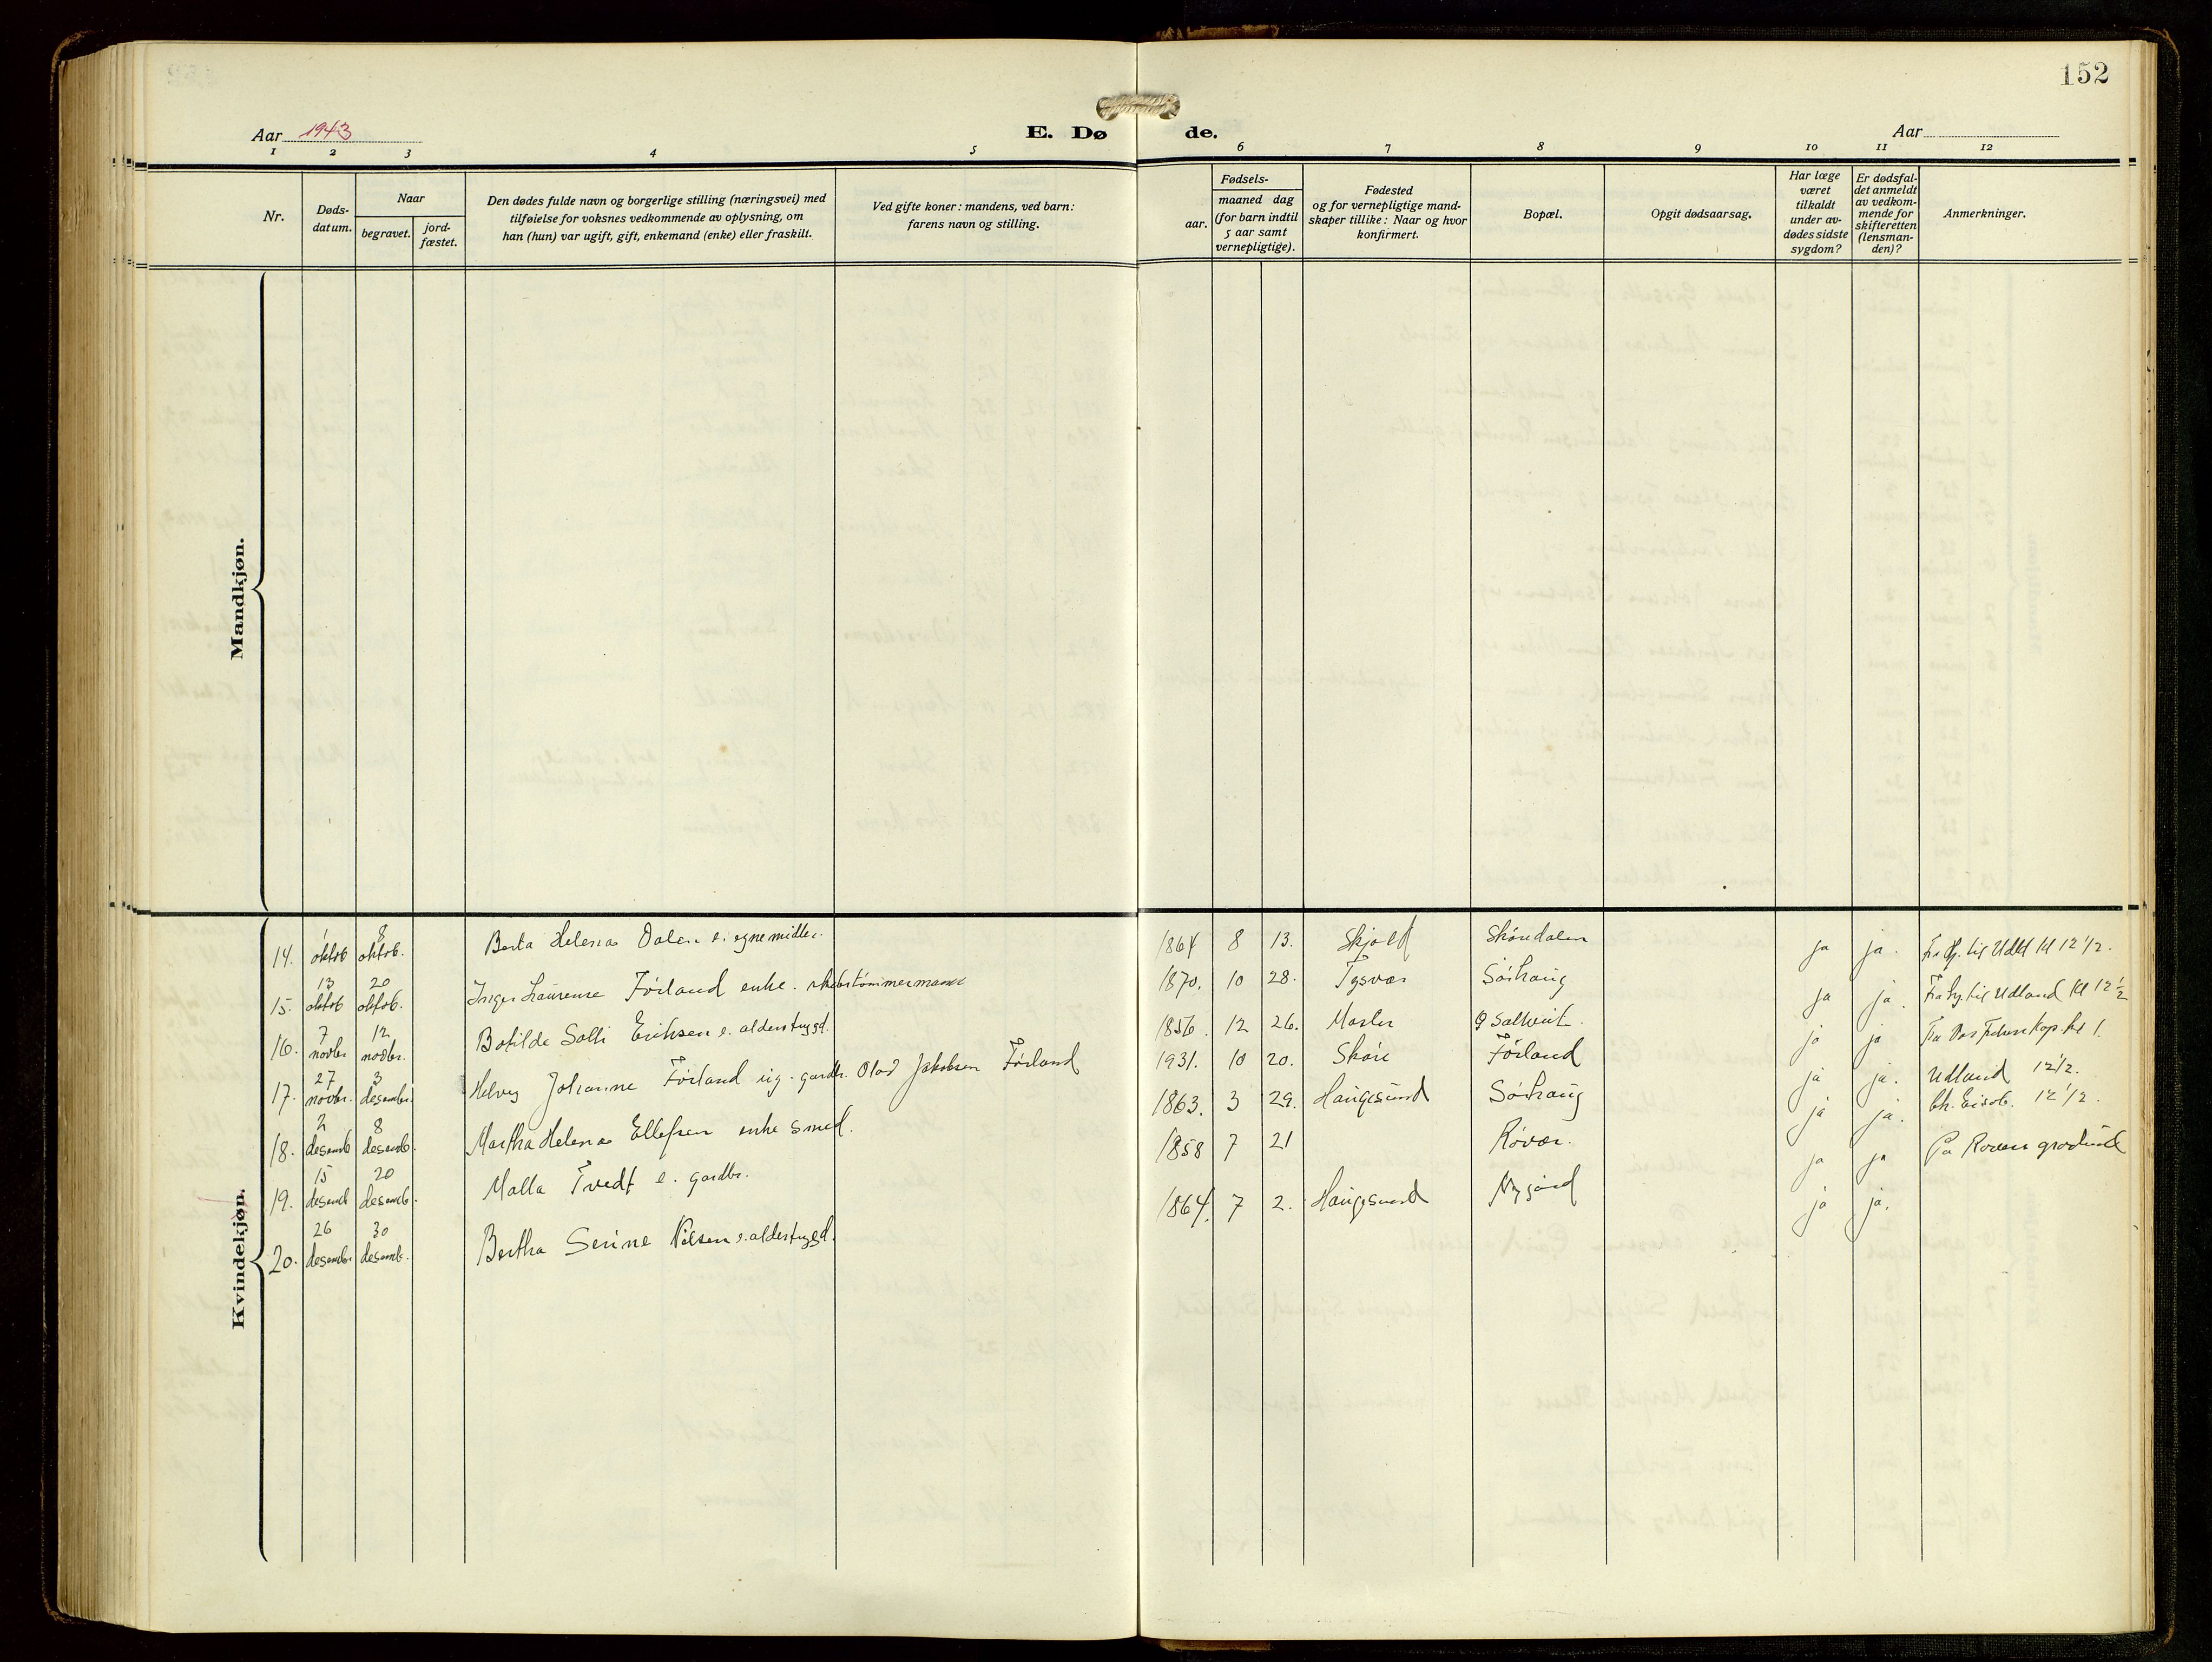 152
Aar 1943
E. Dø de.
Aar
1 2 3 4 5 6 7 8 9 10 11 12
Nr.
Døds-
datum.
Naar
begravet.
jord-
fæstet.
Den dødes fulde navn og borgerlige stilling (næringsvei) med
tilføielse for voksnes vedkommende av oplysning, om
han (hun) var ugift, gift, enkemand (enke) eller fraskilt.
Ved gifte koner: mandens, ved barn:
farens navn og stilling.
Fødsels-
aar.
maaned dag
(for barn indtil
5 aar samt
vernepligtige).
Fødested
og for vernepligtige mand-
skaper tillike: Naar og hvor
konfirmert.
Bopæl.
Opgit dødsaarsag.
Har læge
været
tilkaldt
under av-
dødes sidste
sygdom?
Er dødsfal-
det anmeldt
av vedkom-
mende for
skifteretten
(lensman-
den)?
Anmerkninger.
Mandkjøn.
Kvindekjøn.
14. 1 oktob 8 oktob. Berta Helena Dalen e. egne midler. 1864 8 13. Skjold Skåredalen ja ja. til Kl 12 1/2.
15. 13 oktob 20 oktob. Inger Laurense Førland enke. skibstømmermann 1870. 10 28. Tysvær Sørhaug ja ja. til Udland Kl 12 1/2
16. 7 novbr 12 novbr. Botilde Solli Eriksen e. alderstrygd. 1856. 12 26. ja ja kl 1.
17. 27 novbr. 3 desembr. Helvig Johanne Førland ug. gardbr. Olav Jakobsen Førland 1931. 10 20. Skåre Førland ja ja. Udland 12 1/2.
18. 2 desemb 8 desemb. Martha Helena Ellefsen enke smed. 1863. 3 29. Haugesund Sørhaug ja ja. 12 1/2.
19. 15 desemb 20 desemb. Malla Tvedt e. gardbr. 1858 7 21 Røvær. ja ja På
20. 26 desembr 30 desemb. Bertha Serine Nilsen e. alderstrygd. 1864. 7 2. Haugesund Nygård ja ja.